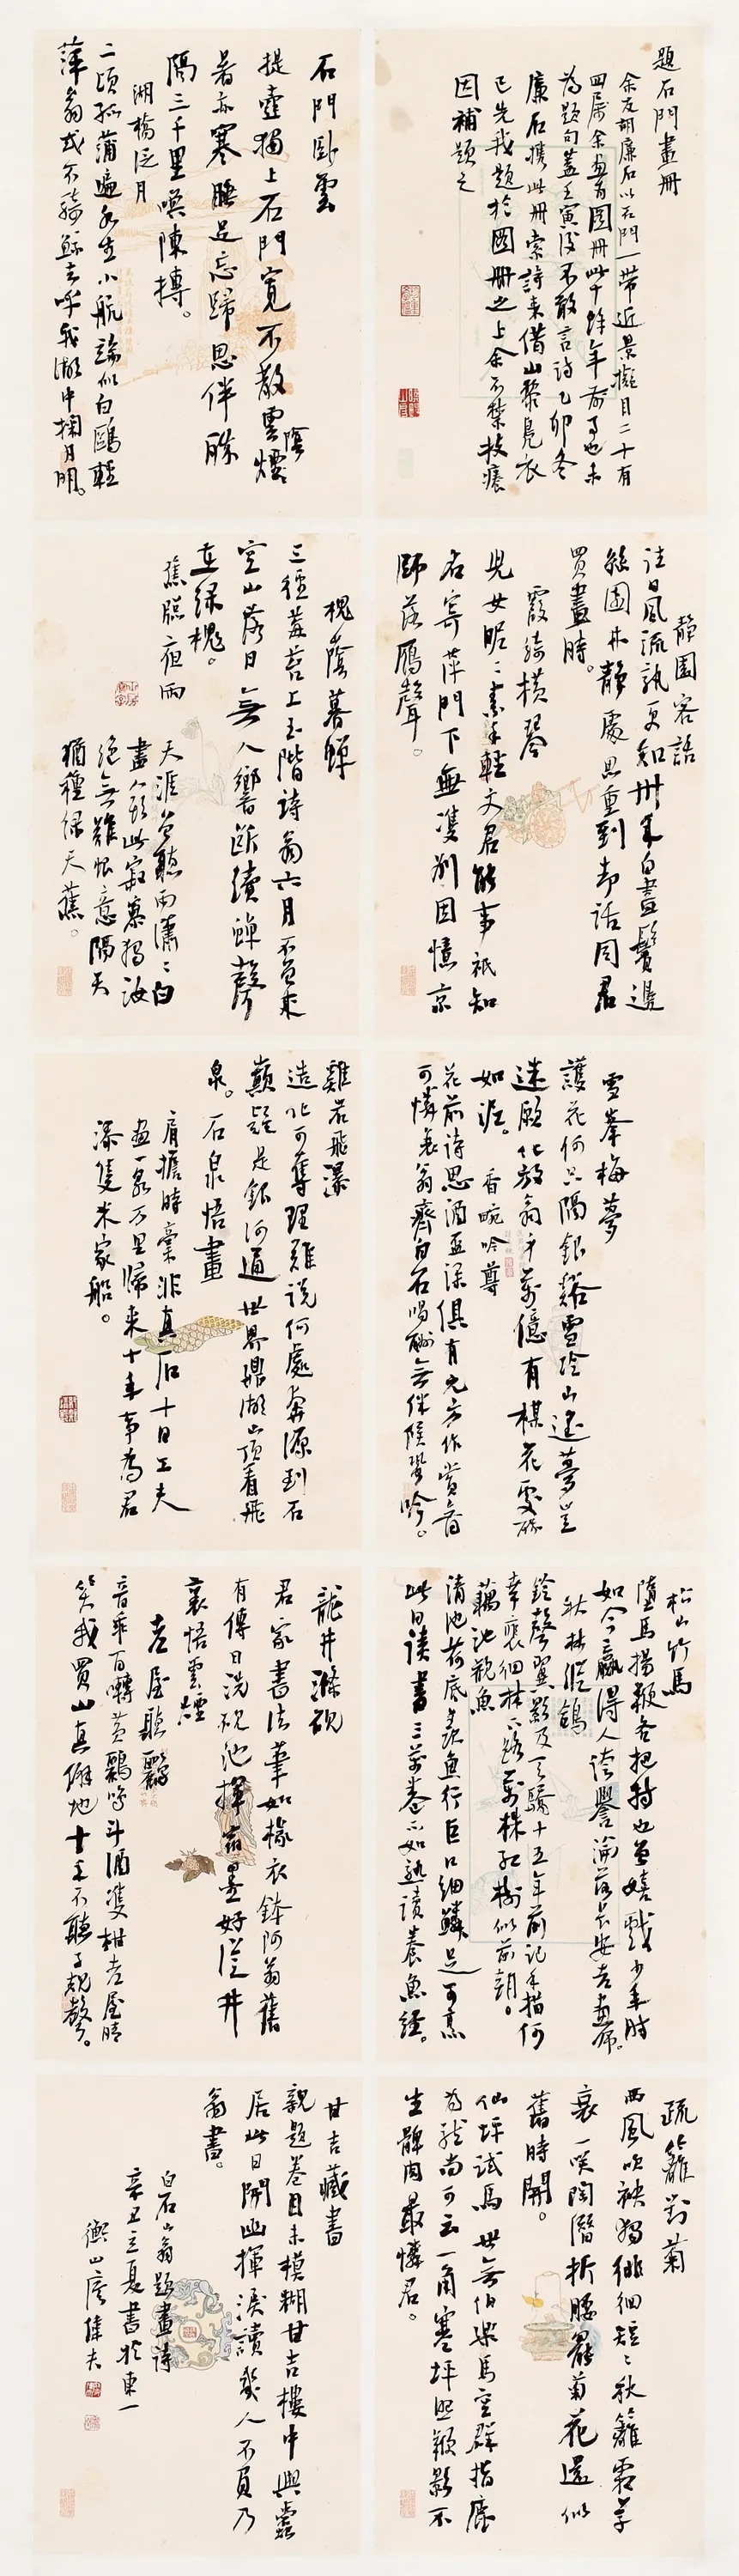 題石門畫冊
余友胡廉石以石門一帶近景擬目二十有
四屬余畫為圖冊此十餘年前事也未
為題句蓋壬寅後不敢言詩乙卯冬
廉石攜此冊索詩來借山黎鳧衣
已先我題於圖冊之上余不禁技癢
因補題之
石門臥雲
提壺獨上石門寬不散雲煙
蔭
著亦寒睡足忘歸思伴
隔三千里喚陳摶。
湖橋泛月
二頃菰蒲遍水生小航論似白鷗輕
萍翁或不騎鯨去呼我湖中掬月明。
靜園客話
往日風流孰更知卅年白盡鬢邊
絲園林靜處思重到却話同君
買畫時。
霞綺橫琴
兒女昵昵素手輕文君能事祇知
名寄萍門下無雙別因憶京
師落雁聲。
槐蔭暮蟬
三徑莓苔上玉階詩翁六月不曾來
空山落日無人響斷續蟬聲
在綠槐。
蕉窗夜雨
天涯曾聽雨瀟瀟白
盡人頭此寂寥獨汝
絕無離恨意隔天
猶種綠天蕉。
雪峯梅夢
護花何只隔銀谿雪冷山遙夢豈
迷願化放翁千萬億有楳花處醉
如泥。
香畹吟尊
花前詩思酒盃深俱有尤方作賞音
可憐衰翁齊白石唱酬無伴候蛩吟。
雞岩飛瀑
造化可奪理難說何處奔源到石
巔疑是銀河通世界鼎湖山頂看飛
泉。
石泉悟畫
肩擔時橐非真石十日工夫
畫一泉萬里歸來十年事為君
潑隻米家船。
松山竹馬
墮馬揚鞭各把持也曾嬉戲少年時
如今贏得人誇譽淪落長安老畫師。
秋林縱鴿
鈴聲翼影及天驕十五年前記手描何
幸裵佪林下路萬株紅樹似前朝。
藕池觀魚
清池荷底羨魚行巨口細鱗足可烹
此日讀書三萬卷不如熟讀養魚經。
龍井滌硯
君家書法筆如椽衣鉢阿翁舊
有傳日洗硯池揮宿墨好從井
裏悟雲煙
老屋聽鸝
音乖百囀黃鸝鳴斗酒雙柑老屋晴
笑我買山真僻地十年不聽子規聲。
疏籬對菊
西風吹袂獨徘徊短短秋籬霜草
衰一笑陶潛折腰罷菊花還似
舊時開。
仙坪試馬
世無伯樂馬空群指鹿
為龍尚可云一角寒坪思鞭影不
生髀肉最憐君。
甘吉藏書
親題卷目未模糊甘吉樓中與蠹
居此日開函揮淚讀幾人不負乃
翁書。
白石山翁題畫詩
辛丑立夏書於東一